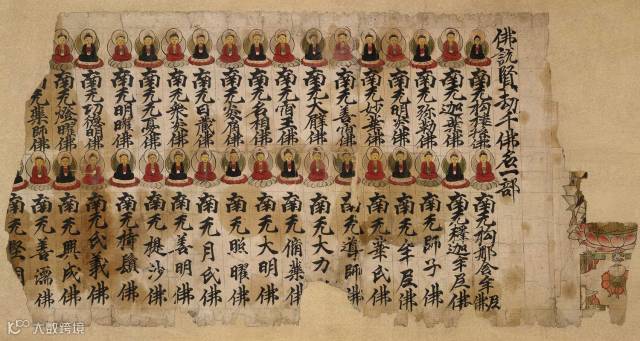 佛説賢劫千佛名一部
南无拘樓孫佛
南无拘那含牟尼佛
南无迦葉佛
南无釋迦牟尼佛
南无弥勒佛
南无師子佛
南无明炎佛
南无牟尼佛
南无妙華佛
南无華氏佛
南无善宿佛
南无導師佛
南无大臂佛
南无大力
南无宿王佛
南无脩藥佛
南无名相佛
南无大明佛
南无炎肩佛
南无照曜佛
南无日藏佛
南无月氏佛
南无衆炎佛
南无善明佛
南无无憂佛
南无提沙佛
南无明曜佛
南无持鬘佛
南无功德明佛
南无氏義佛
南无燈曜佛
南无興盛佛
无藥師佛
南无善濡佛
南无堅
大数跨境